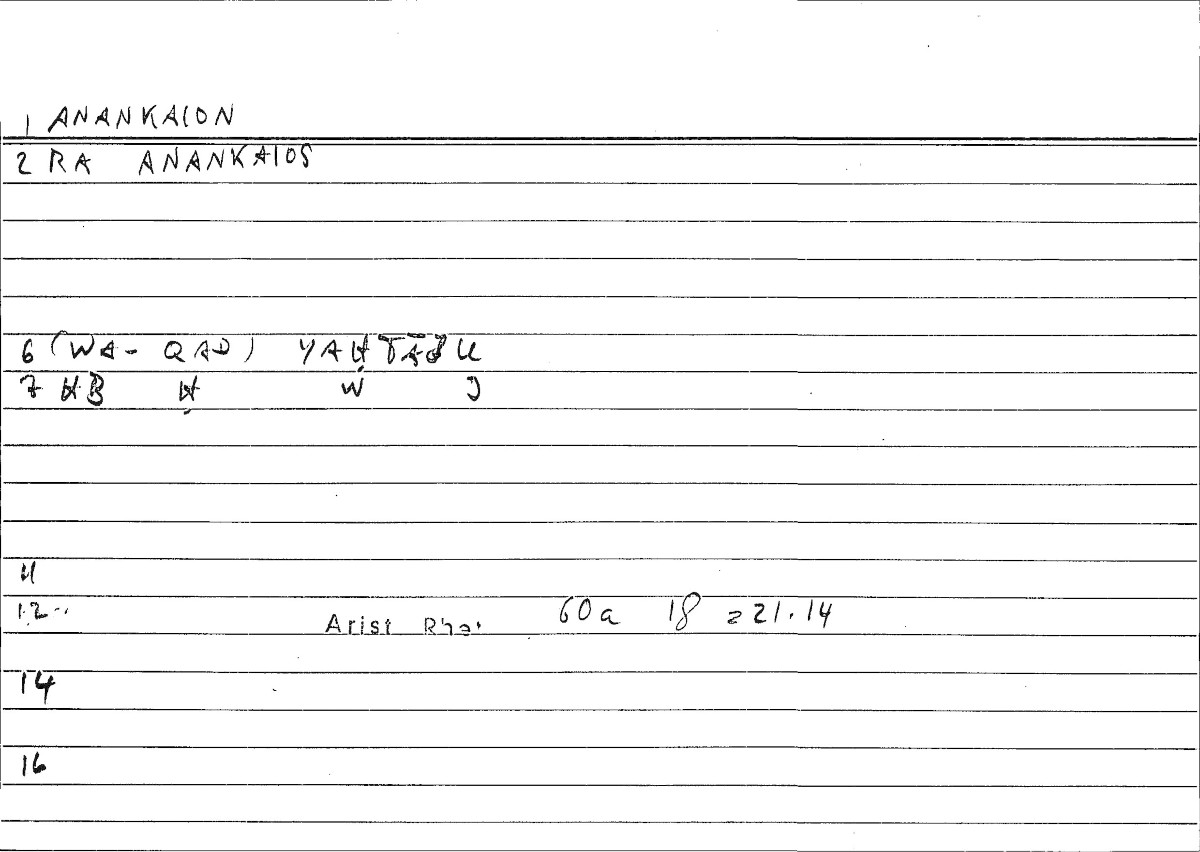 1 ANANKAION
2 RA ANANKAIOS
6 (WA- QAD) YAḤTĀǦU
7 ḤB Ḥ W J
11
12.. Arist Rhet 60a 18 = 21.14
14
16